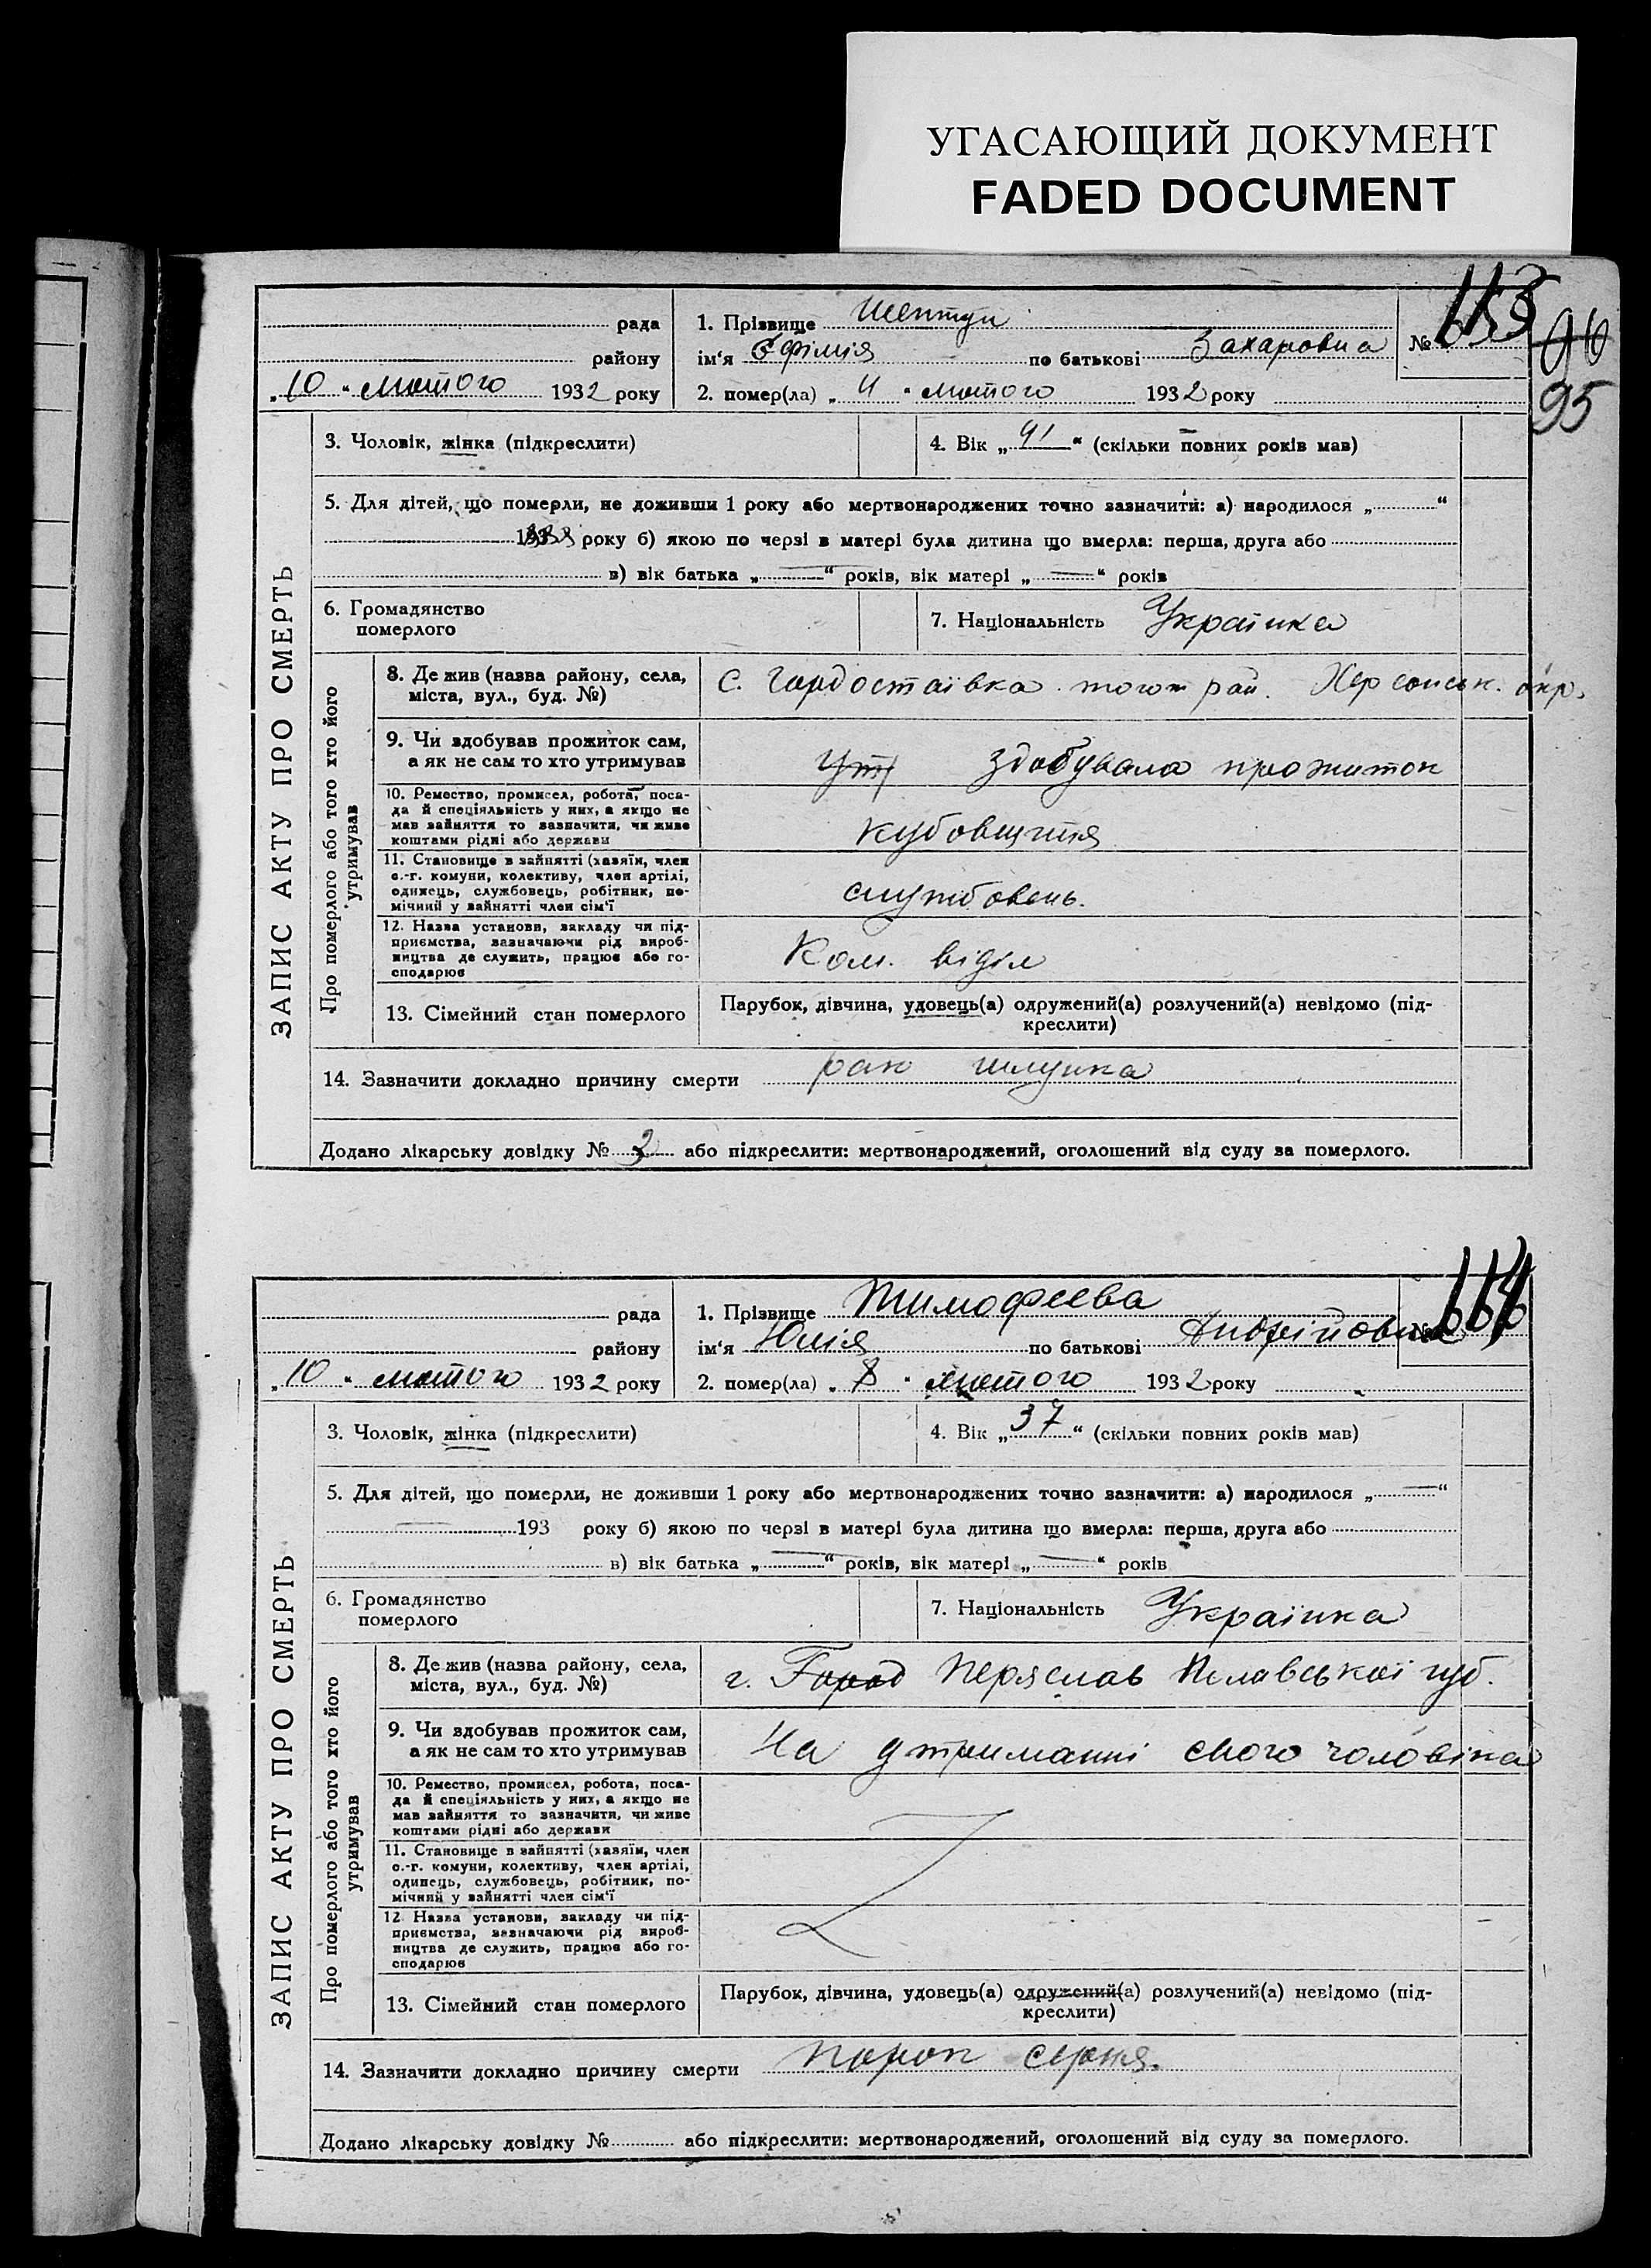 УГАСАЮЩИЙ ДОКУМЕНТ
FADED DOCUMENT
95
ЗАПИС АКТУ ПРО СМЕРТЬ
рада
району
„10“ лютого 1932 року
1. Прізвище Шептун
ім‘я Єфімія по батькові Захаровна
№ 113
2. помер(ла) „4“ лютого 1932 року
3. Чоловік, жінка (підкреслити)
4. Вік „41“ (скільки повних років мав)
5. Для дітей, що померли, не доживши 1 року або мертвонароджених точно зазначити: а) народилося „ “
193 року б) якою по черзі в матері була дитина що вмерла: перша, друга або
в) вік батька „—“ років, вік матері „—“ років
6. Громадянство
померлого
7. Національність Українка
Про померлого або того хто його
утримував
8. Де жив (назва району, села,
міста, вул., буд. №)
с. Горностаївка того ж рай. Херсонськ. окр.
9. Чи здобував прожиток сам,
а як не сам то хто утримував
здобувала прожиток
10. Ремество, промисел, робота, поса-
да й спеціяльність у них, а якщо не
мав зайняття то зазначити, чи живе
коштами рідні або держави
11. Становище в зайнятті (хазяїн, член
с.-г. комуни, колективу, член артілі,
одинець, службовець, робітник, по-
мічний у зайнятті член сім‘ї
службовець.
12. Назва установи, закладу чи під-
приємства, зазначаючи рід вироб-
ництва де служить, працює або го-
сподарює
Ком. віділ
13. Сімейний стан померлого
Парубок, дівчина, удовець(а) одружений(а) розлучений(а) невідомо (під-
креслити)
14. Зазначити докладно причину смерти рак шлунка
Додано лікарську довідку № 3 або підкреслити: мертвонароджений, оголошений від суду за померлого.
ЗАПИС АКТУ ПРО СМЕРТЬ
рада
району
„10“ лютого 1932 року
1. Прізвище Тимофеева
ім‘я Юлія по батькові Андрійовна
№ 114
2. помер(ла) „8“ лютого 1932 року
3. Чоловік, жінка (підкреслити)
4. Вік „37“ (скільки повних років мав)
5. Для дітей, що померли, не доживши 1 року або мертвонароджених точно зазначити: а) народилося „—“
— 193 року б) якою по черзі в матері була дитина що вмерла: перша, друга або
в) вік батька „—“ років, вік матері „—“ років
6. Громадянство
померлого
7. Національність Українка
Про померлого або того хто його
утримував
8. Де жив (назва району, села,
міста, вул., буд. №)
г. Город Переслав губ.
9. Чи здобував прожиток сам,
а як не сам то хто утримував
На утриманні свого чоловіка
10. Ремество, промисел, робота, поса-
да й спеціяльність у них, а якщо не
мав зайняття то зазначити, чи живе
коштами рідні або держави
11. Становище в зайнятті (хазяїн, член
с.-г. комуни, колективу, член артілі,
одинець, службовець, робітник, по-
мічний у зайнятті член сім‘ї
12 Назва установи, закладу чи під-
приємства, зазначаючи рід вироб-
ництва де служить, працює або го-
сподарює
13. Сімейний стан померлого
Парубок, дівчина, удовець(а) одружений(а) розлучений(а) невідомо (під-
креслити)
14. Зазначити докладно причину смерти порок серця.
Додано лікарську довідку № або підкреслити: мертвонароджений, оголошений від суду за померлого.